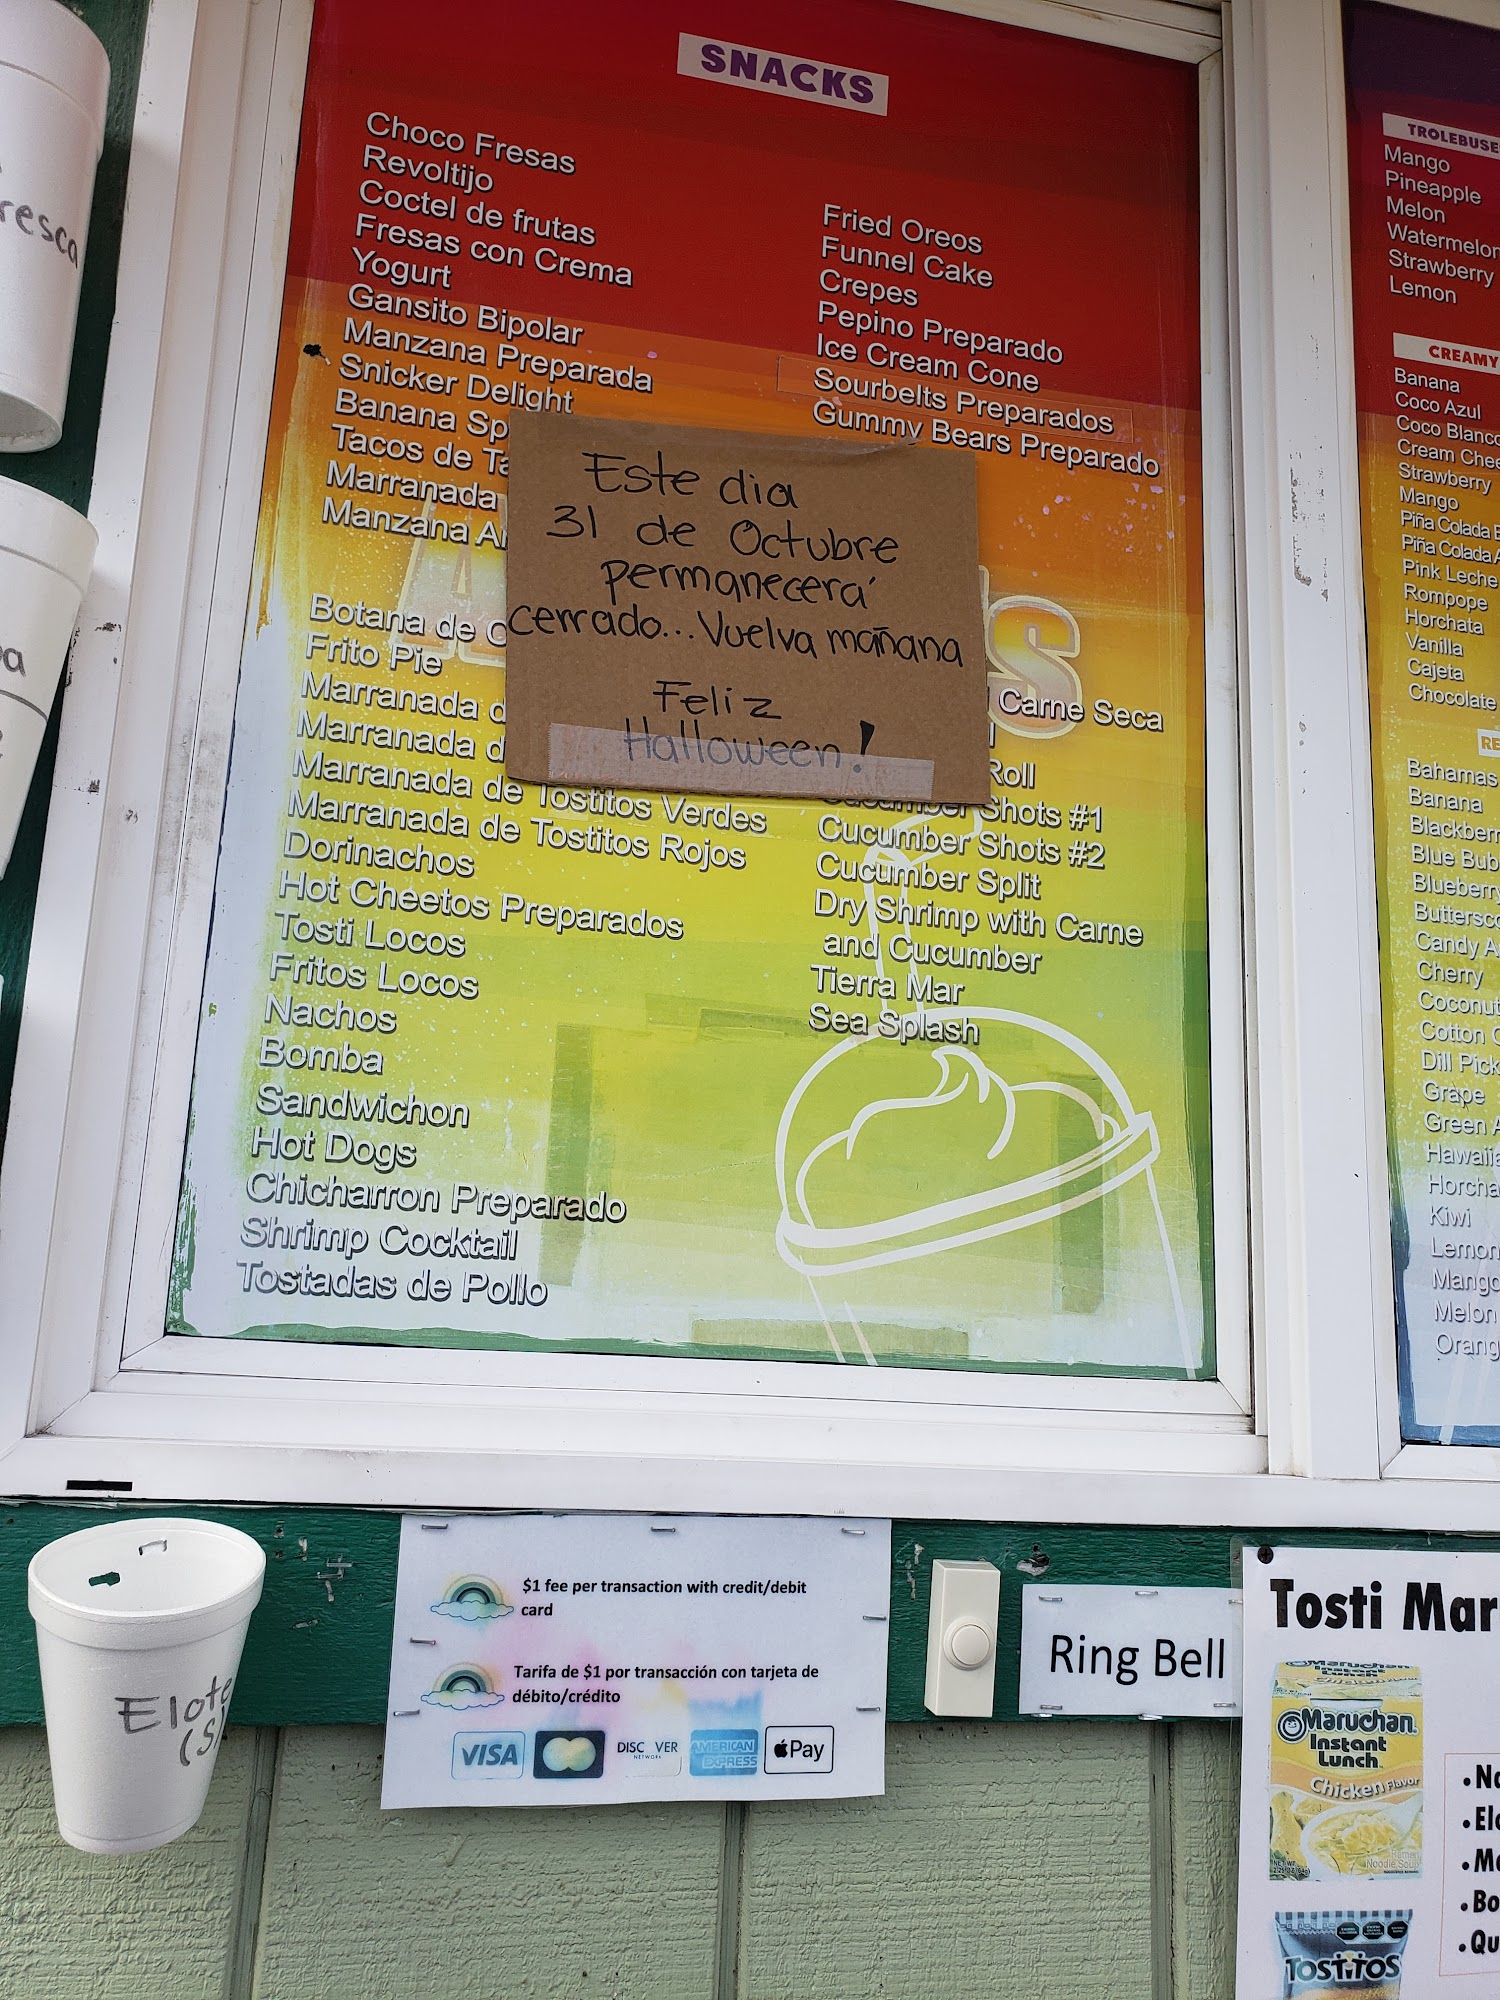 SNACKS
Choco Fresas
Revoltijo
Coctel de frutas
Fresas con Crema
Yogurt
Gansito Bipolar
Manzana Preparada
Snicker Delight
Banana
Tacos de
Marranada
Manzana
Botana de
Frito Pie
Marranada
Marranada
Marranada de Tostitos Verdes
Marranada de Tostitos Rojos
Dorinachos
Hot Cheetos Preparados
Tosti Locos
Fritos Locos
Nachos
Bomba
Sandwichon
Hot Dogs
Chicharron Preparado
Shrimp Cocktail
Tostadas de Pollo
Fried Oreos
Funnel Cake
Crepes
Pepino Preparado
Ice Cream Cone
Sourbelts Preparados
Gummy Bears Preparado
Carne Seca
Roll
Cucumber Shots #1
Cucumber Shots #2
Cucumber Split
Dry Shrimp with Carne
and Cucumber
Tierra Mar
Sea Splash
Este dia
31 de Octubre
permanecerá
cerrado... Vuelva mañana
Feliz
Halloween!
Mango
Pineapple
Melon
Watermelon
Strawberry
Lemon
CREAMY
Banana
Coco Azul
Coco Blanco
Cream
Strawberry
Mango
Piña Colada
Piña Colada
Pink Leche
Rompope
Horchata
Vanilla
Cajeta
Chocolate
Bahamas
Banana
Blue
Blueberry
Candy
Cherry
Coconut
Cotton
Dill
Grape
Green
Kiwi
Lemon
Mango
Melon
Elote
(S)
$1 fee per transaction with credit/debit
card
Tarifa de $1 por transacción con tarjeta de
débito/crédito
VISA
DISCOVER
NETWORK
AMERICAN
EXPRESS
Pay
Ring Bell
Tosti
Maruchan
Instant
Lunch
Chicken Flavor
Ramen
Noodle Soup
TOSTITOS